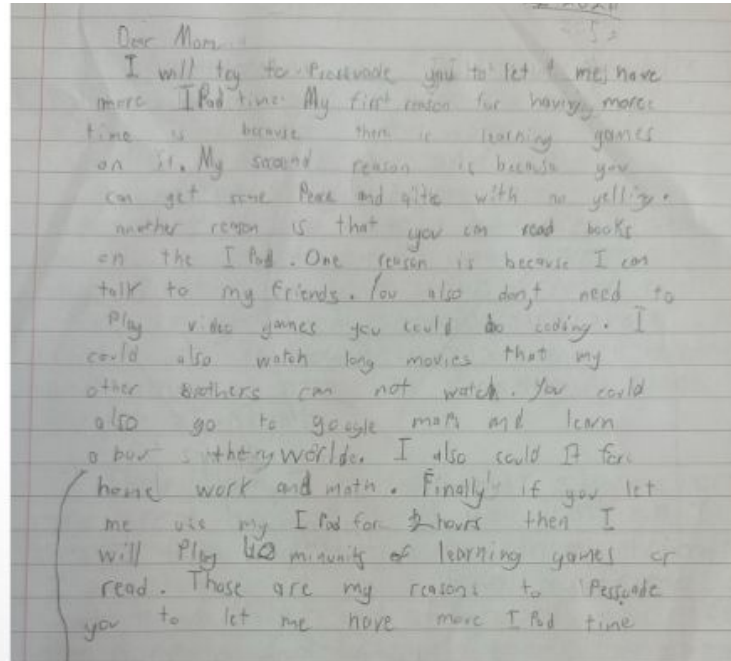 Dear Mom
I will try to Presswade you to let me have
more I Pad time. My first reason for having more
time is because there is learning games
on it. My second reason is because you
can get some Peace and qitte with no yelling.
another reason is that you can read books
on the I Pad. One reason is because I can
talk to my friends. You also don,t need to
Play video games you could do coding. I
could also watch long movies that my
other Brothers can not watch. You could
also go to google maps and learn
a bout the worlde. I also could It for
home work and math. Finally if you let
me use my I Pad for 2 hours then I
will Play 40 minunits of learning games or
read. Those are my reasons to Pesswade
you to let me have more I Pad time